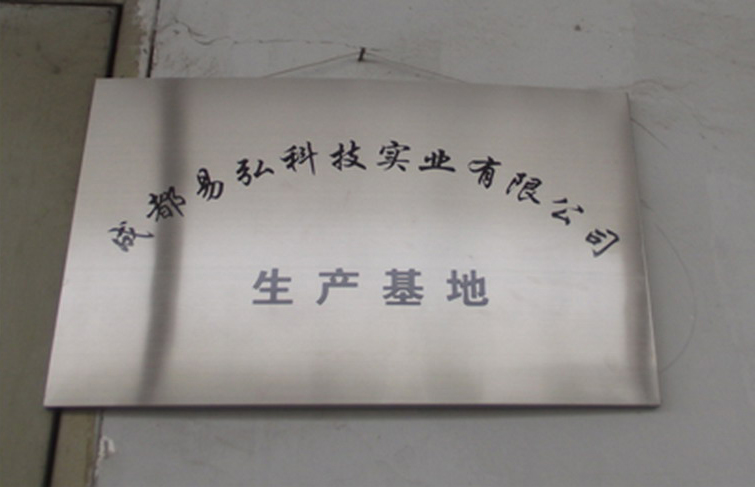 成都易弘科技实业有限公司
生产基地